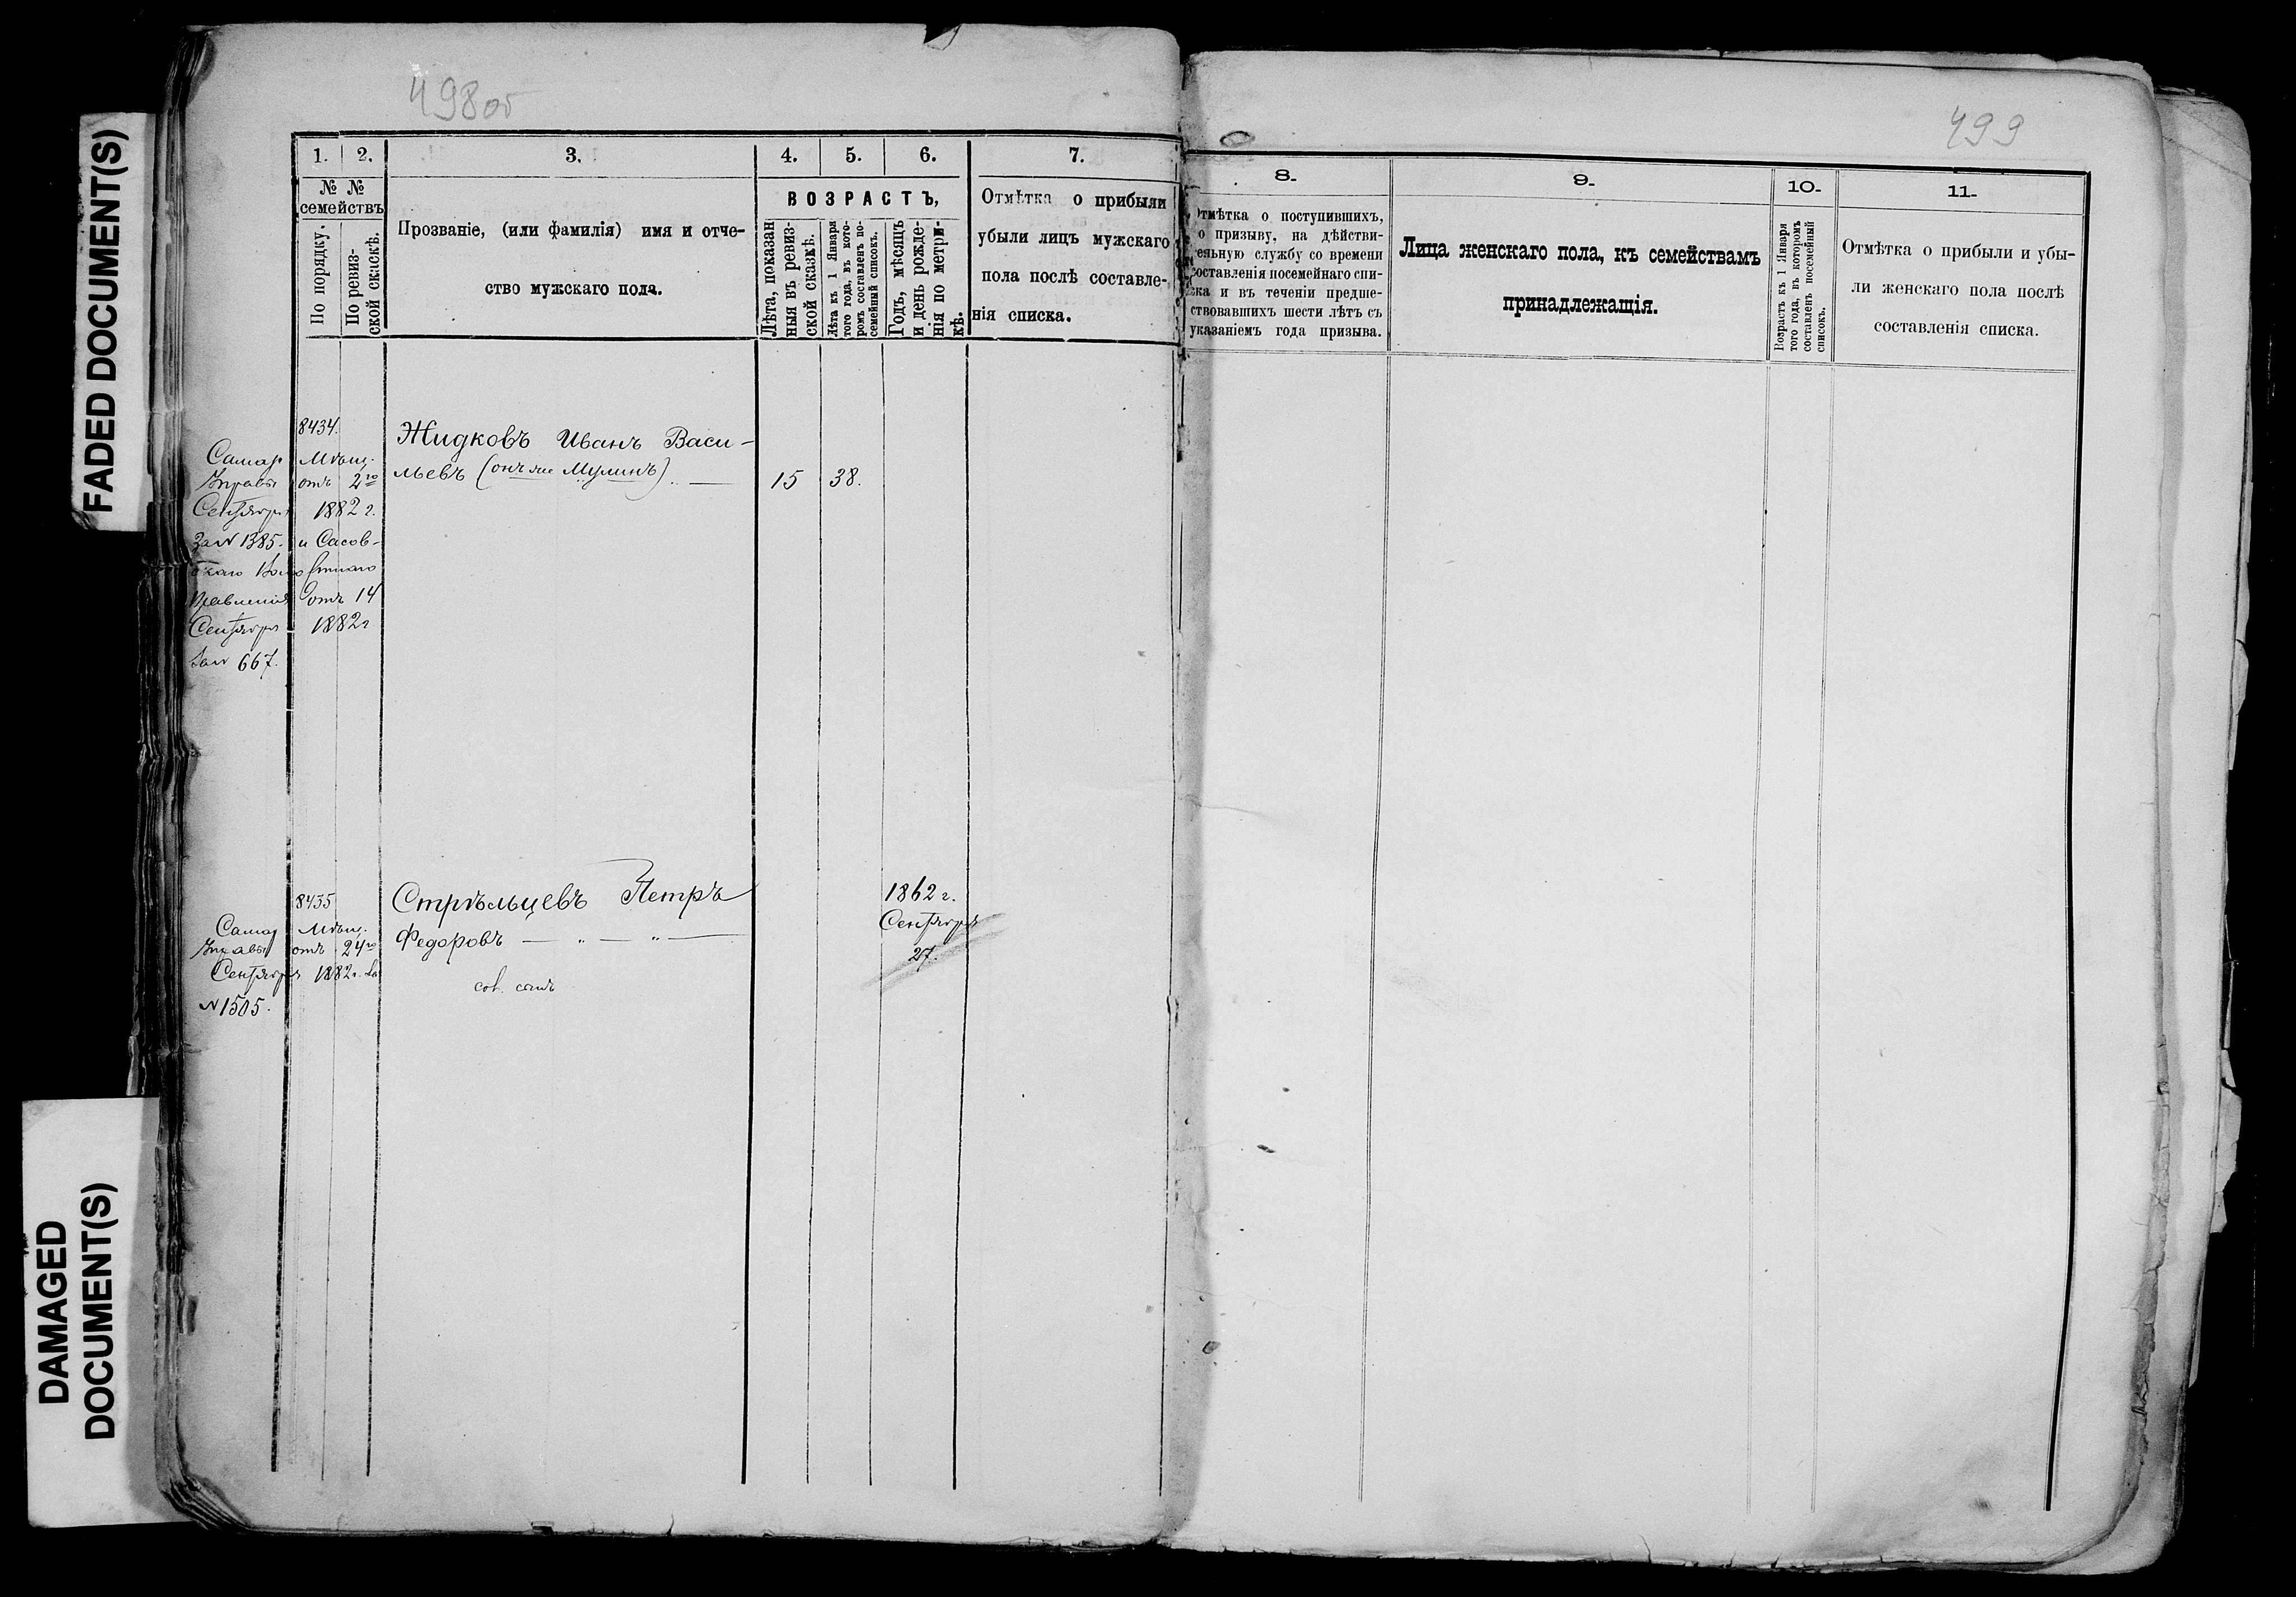 FADED DOCUMENT(S)
DAMAGED
DOCUMENT(S)
498об
1. 2. 3. 4. 5. 6. 7.
№ №
семействъ
По порядку.
По ревиз-
ской скаскѣ.
Прозваніе, (или фамилія) имя и отче-
ство мужскаго пола.
ВОЗРАСТЪ,
Лѣта, показан
ныя въ ревиз-
ской сказкѣ.
Лѣта къ 1 Января
того года, въ кото-
ромъ составленъ по-
семейный списокъ.
Годъ, мѣсяцъ
и день рожде-
нія по метри-
кѣ.
Отмѣтка о прибыли
убыли лицъ мужскаго
пола послѣ составле-
нія списка.
8434.
Жидковъ Иванъ Васи-
льевъ (онъ же Мулинъ)
15 38.
Самар Мѣщ.
Управы отъ 2го
Сентября 1882 г.
за № 1385. и Сасов-
скаго Волостнаго
Правленія отъ 14
Сентября 1882 г
за № 667.
8435
Стрѣльцевъ Петръ
Федоровъ — „ — „ —
1862 г.
Сентября
27.
Самар Мѣщ.
Управы отъ 24го
Сентября 1882 г. за
№ 1505.
499
8. 9. 10. 11.
Отмѣтка о поступившихъ,
по призыву, на дѣйстви-
тельную службу со времени
составленія посемейнаго спи-
ска и въ теченіи предше-
ствовавшихъ шести лѣтъ съ
указаніемъ года призыва.
Лица женскаго пола, къ семействамъ
принадлежащія.
Возрастъ къ 1 Января
того года, въ которомъ
составленъ посемейный
списокъ.
Отмѣтка о прибыли и убы-
ли женскаго пола послѣ
составленія списка.